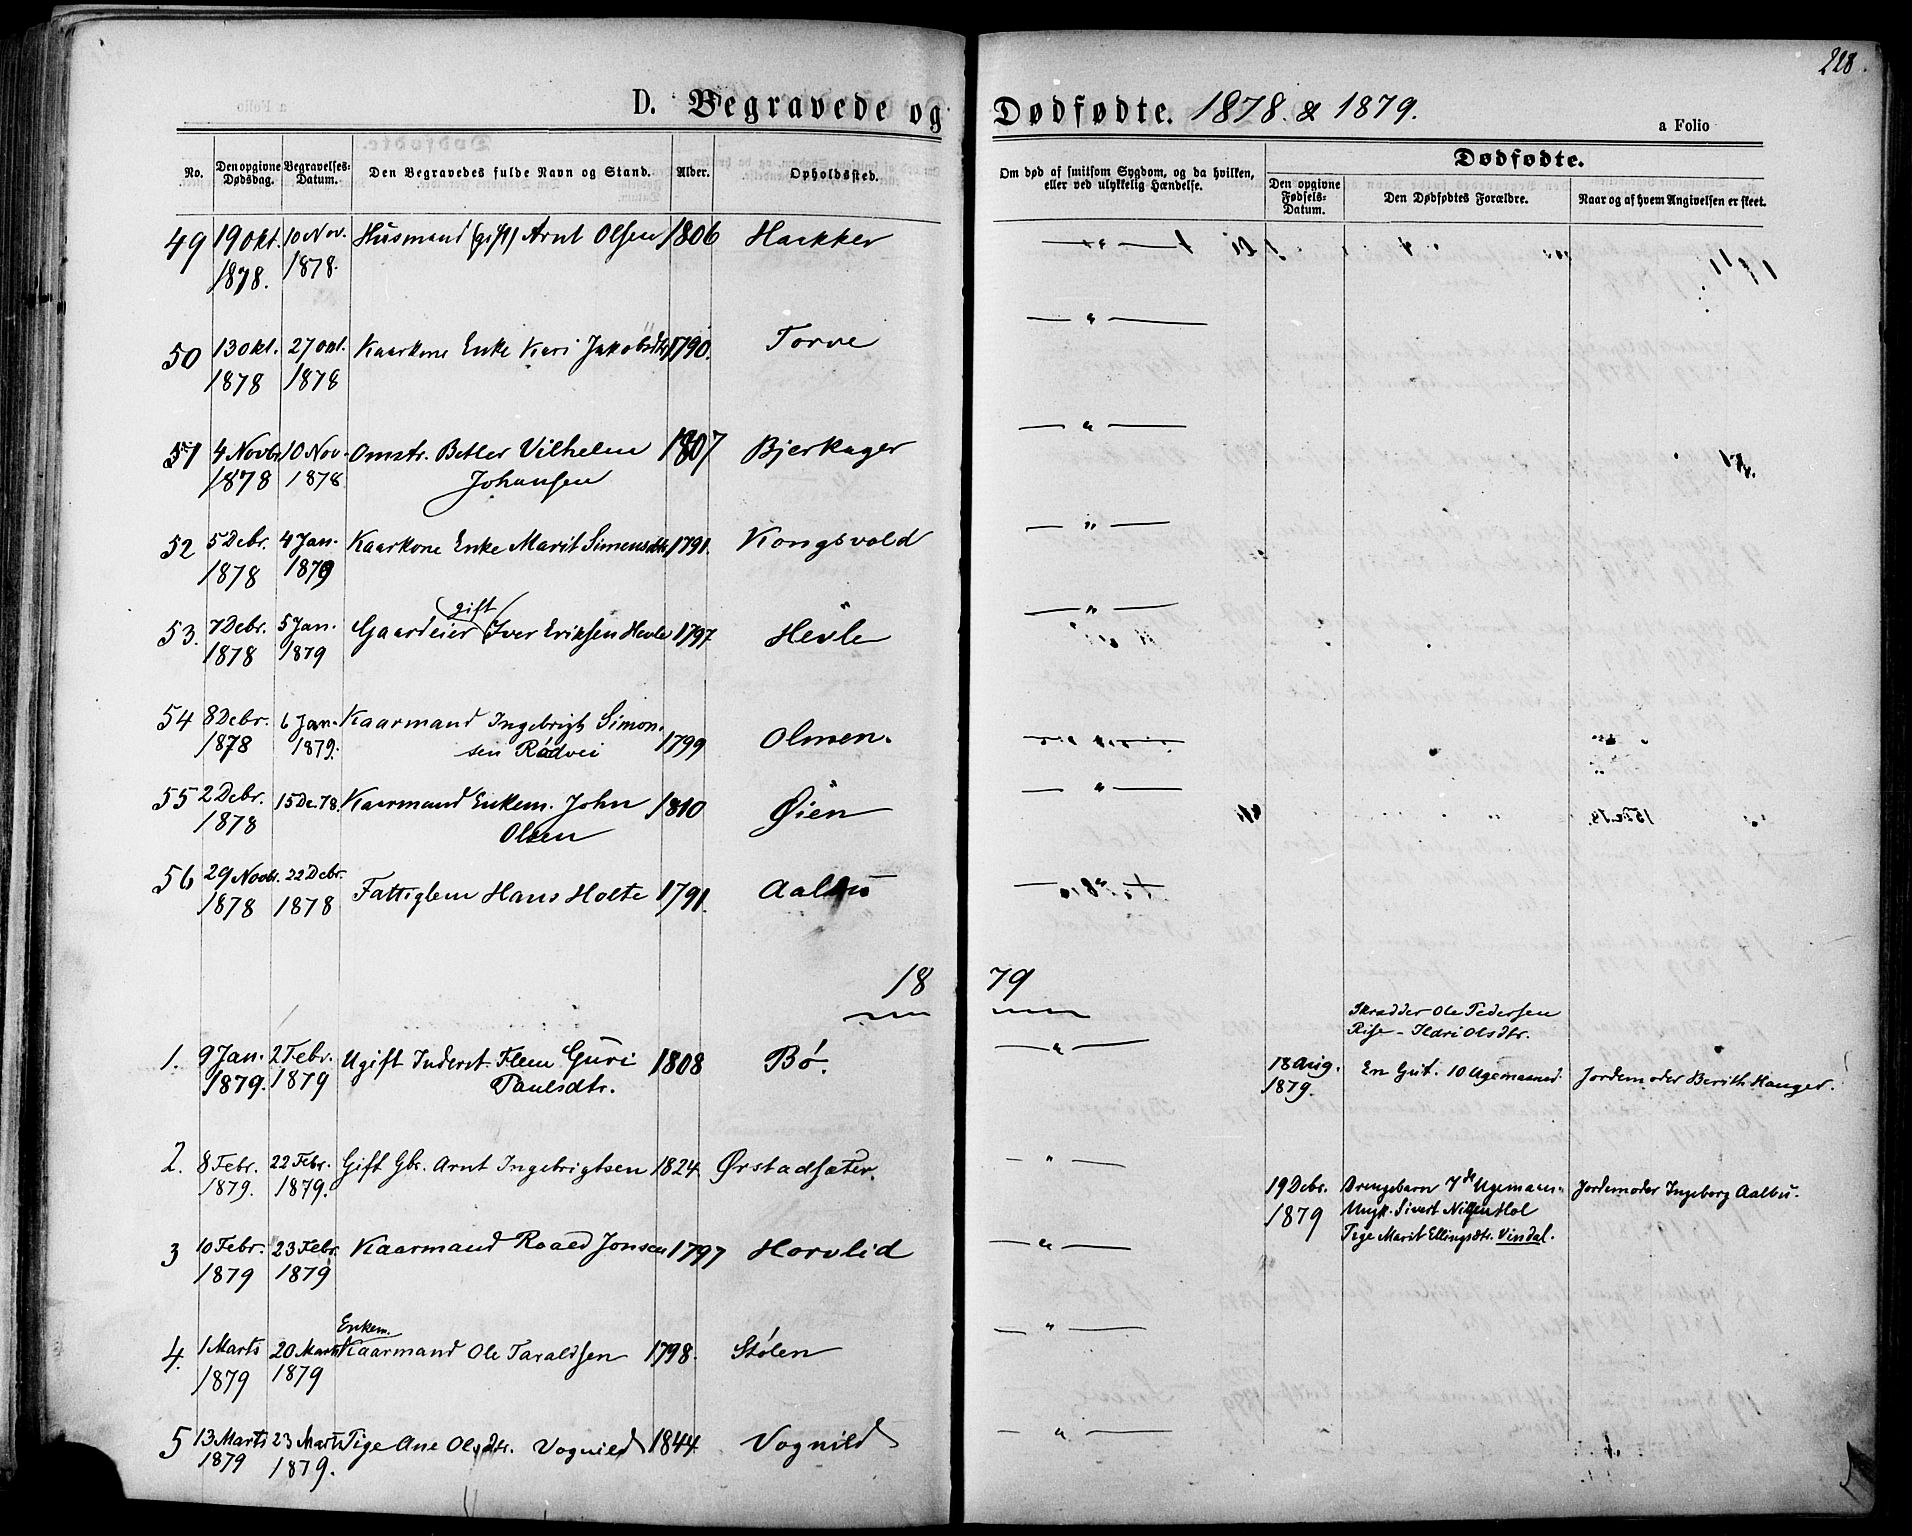 228.
D. Begravede og Dødfødte. 1878. & 1879.
a Folio
No.
Den opgivne Dødsdag.
Begravelses-Datum.
Den Begravedes fulde Navn og Stand.
Alder.
Opholdssted.
Om død af smitsom Sygdom, og da hvilken,
eller ved ulykkelig Hændelse.
Dødfødte.
Den opgivne Fødsels-Datum.
Den Dødfødtes Forældre.
Naar og af hvem Angivelsen er skeet.
49 19 Okt. 10 Nov. Husmand (gift) Arnt Olsen 1806 Haekker — " —
1878. 1878.
50 13 Okt. 27 Okt. Kaarkone Enke Kari Jakobsdtr 1790. Torve — " —
1878 1878
51 4 Novbr 10 Nov. Omstr. Betler Vilhelm 1807 Bjerkager — " —
1878 1878. Johansen
52 5 Debr. 4 Jan. Kaarkone Enke Marit Simensdtr 1791. Kongsvold — " —
1878 1879
gift
53. 7 Debr. 5 Jan. Gaardeier Iver Eriksen Hevle 1797 Hevle — " —
1878 1879
54 8 Debr. 6 Jan. Kaarmand Ingebrigt Simon-
1878 1879. sen Rødvei 1799 Olmen. — " —
55 2 Debr. 15 De. 78. Kaarmand Enkem. John 1810 Øien — " —
1878 Olsen
56 29 Novbr. 22 Debr. Fattiglem Hans Holte 1791. Aalbu — " —
1878 1878
18 79
Skradder Ole Pedersen
Rise - Ildri Olsdtr.
1. 9 Jan. 2 Febr. Ugift Inderst. Flem Guri 1808 Bø. — " —
1879. 1879 Paulsdtr.
18 Aug. En Gut. 10 Ugemaaned. Jordemoder Berith Hauger.
1879.
2. 8 Febr. 22 Febr. Gift Gbr. Arnt Ingebrigtsen 1824 Ørstadsæter. — " —
1879. 1879.
19 Debr. Drengebarn 7de Ugemaan- Jordemoder Ingeborg Aalbu.
1879 Ungk. Sivert Nilsen Hol
Pige Marit Ellingsdtr. Vindal.
3 10 Febr. 23 Febr. Kaarmand Roald Jonsen 1797 Horvlid — " —
1879 1879
Enkem.
4. 1 Marts 20 Marts Kaarmand Ole Taraldsen 1798. Stølen — " —
1879 1879
5 13 Marts 23 Marts Pige Ane Olsdtr. Vognild 1844 Vognild — " —
1879 1879.